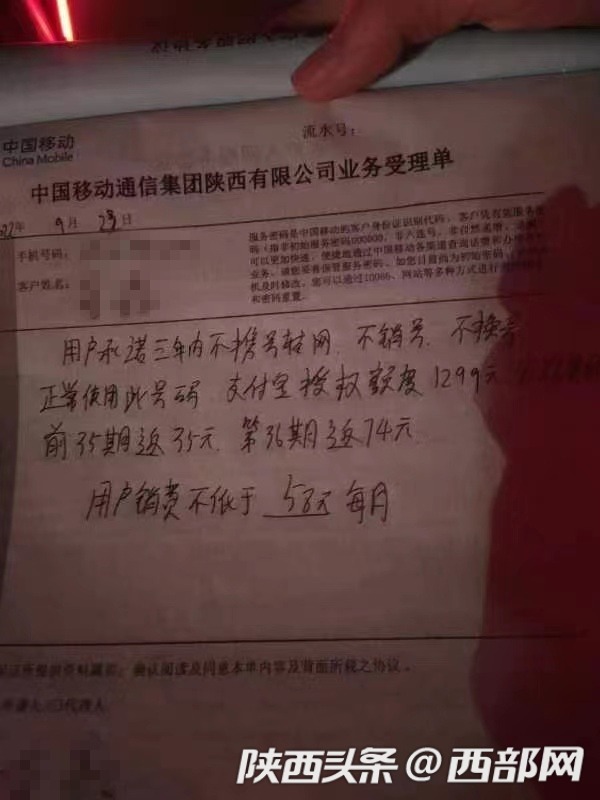 流水号:
中国移动
China Mobile
中国移动通信集团陕西有限公司业务受理单
年 9月 23日
手机号码:
客户姓名:
服务密码是中国移动的客户身份证识别代码,客户凭有效服务
码(指非初始服务密码000000、非六连号、非自然递增、
可以更加快速、便捷地通过中国移动各渠道查询话费和办理
业务。请您妥善保管服务密码。如您目前尚为初始密码,
机及时修改。您可以通过10086、网站等多种方式进行
和密码重置。
用户承诺三年内不携号转网、不销号、不换号
正常使用此号码 支付宝授权额度1299元
前35期返35元 第36期返74元
用户销费不低于 58元 每月
确认阅读及同意本单内容及背面所载之协议。
陕西头条@西部网